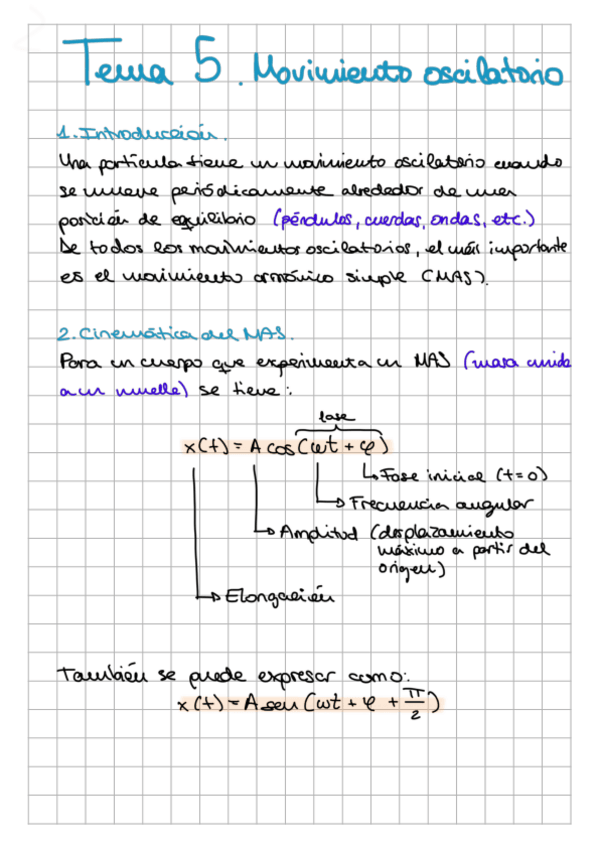 Tema 5. Movimiento oscilatorio
1. Introducción.
Una partícula tiene un movimiento oscilatorio cuando
se mueve periódicamente alrededor de una
posición de equilibrio (péndulos, cuerdas, ondas, etc.)
De todos los movimientos oscilatorios, el más importante
es el movimiento armónico simple (MAS).
2. Cinemática del MAS.
Para un cuerpo que experimenta un MAS (masa unida
a un muelle) se tiene:
fase
x(t) = A cos(ωt + φ)
↳ Fase inicial (t=0)
↳ Frecuencia angular
↳ Amplitud (desplazamiento
máximo a partir del
origen)
↳ Elongación
También se puede expresar como:
x(t) = A sen (ωt + φ + π/2)